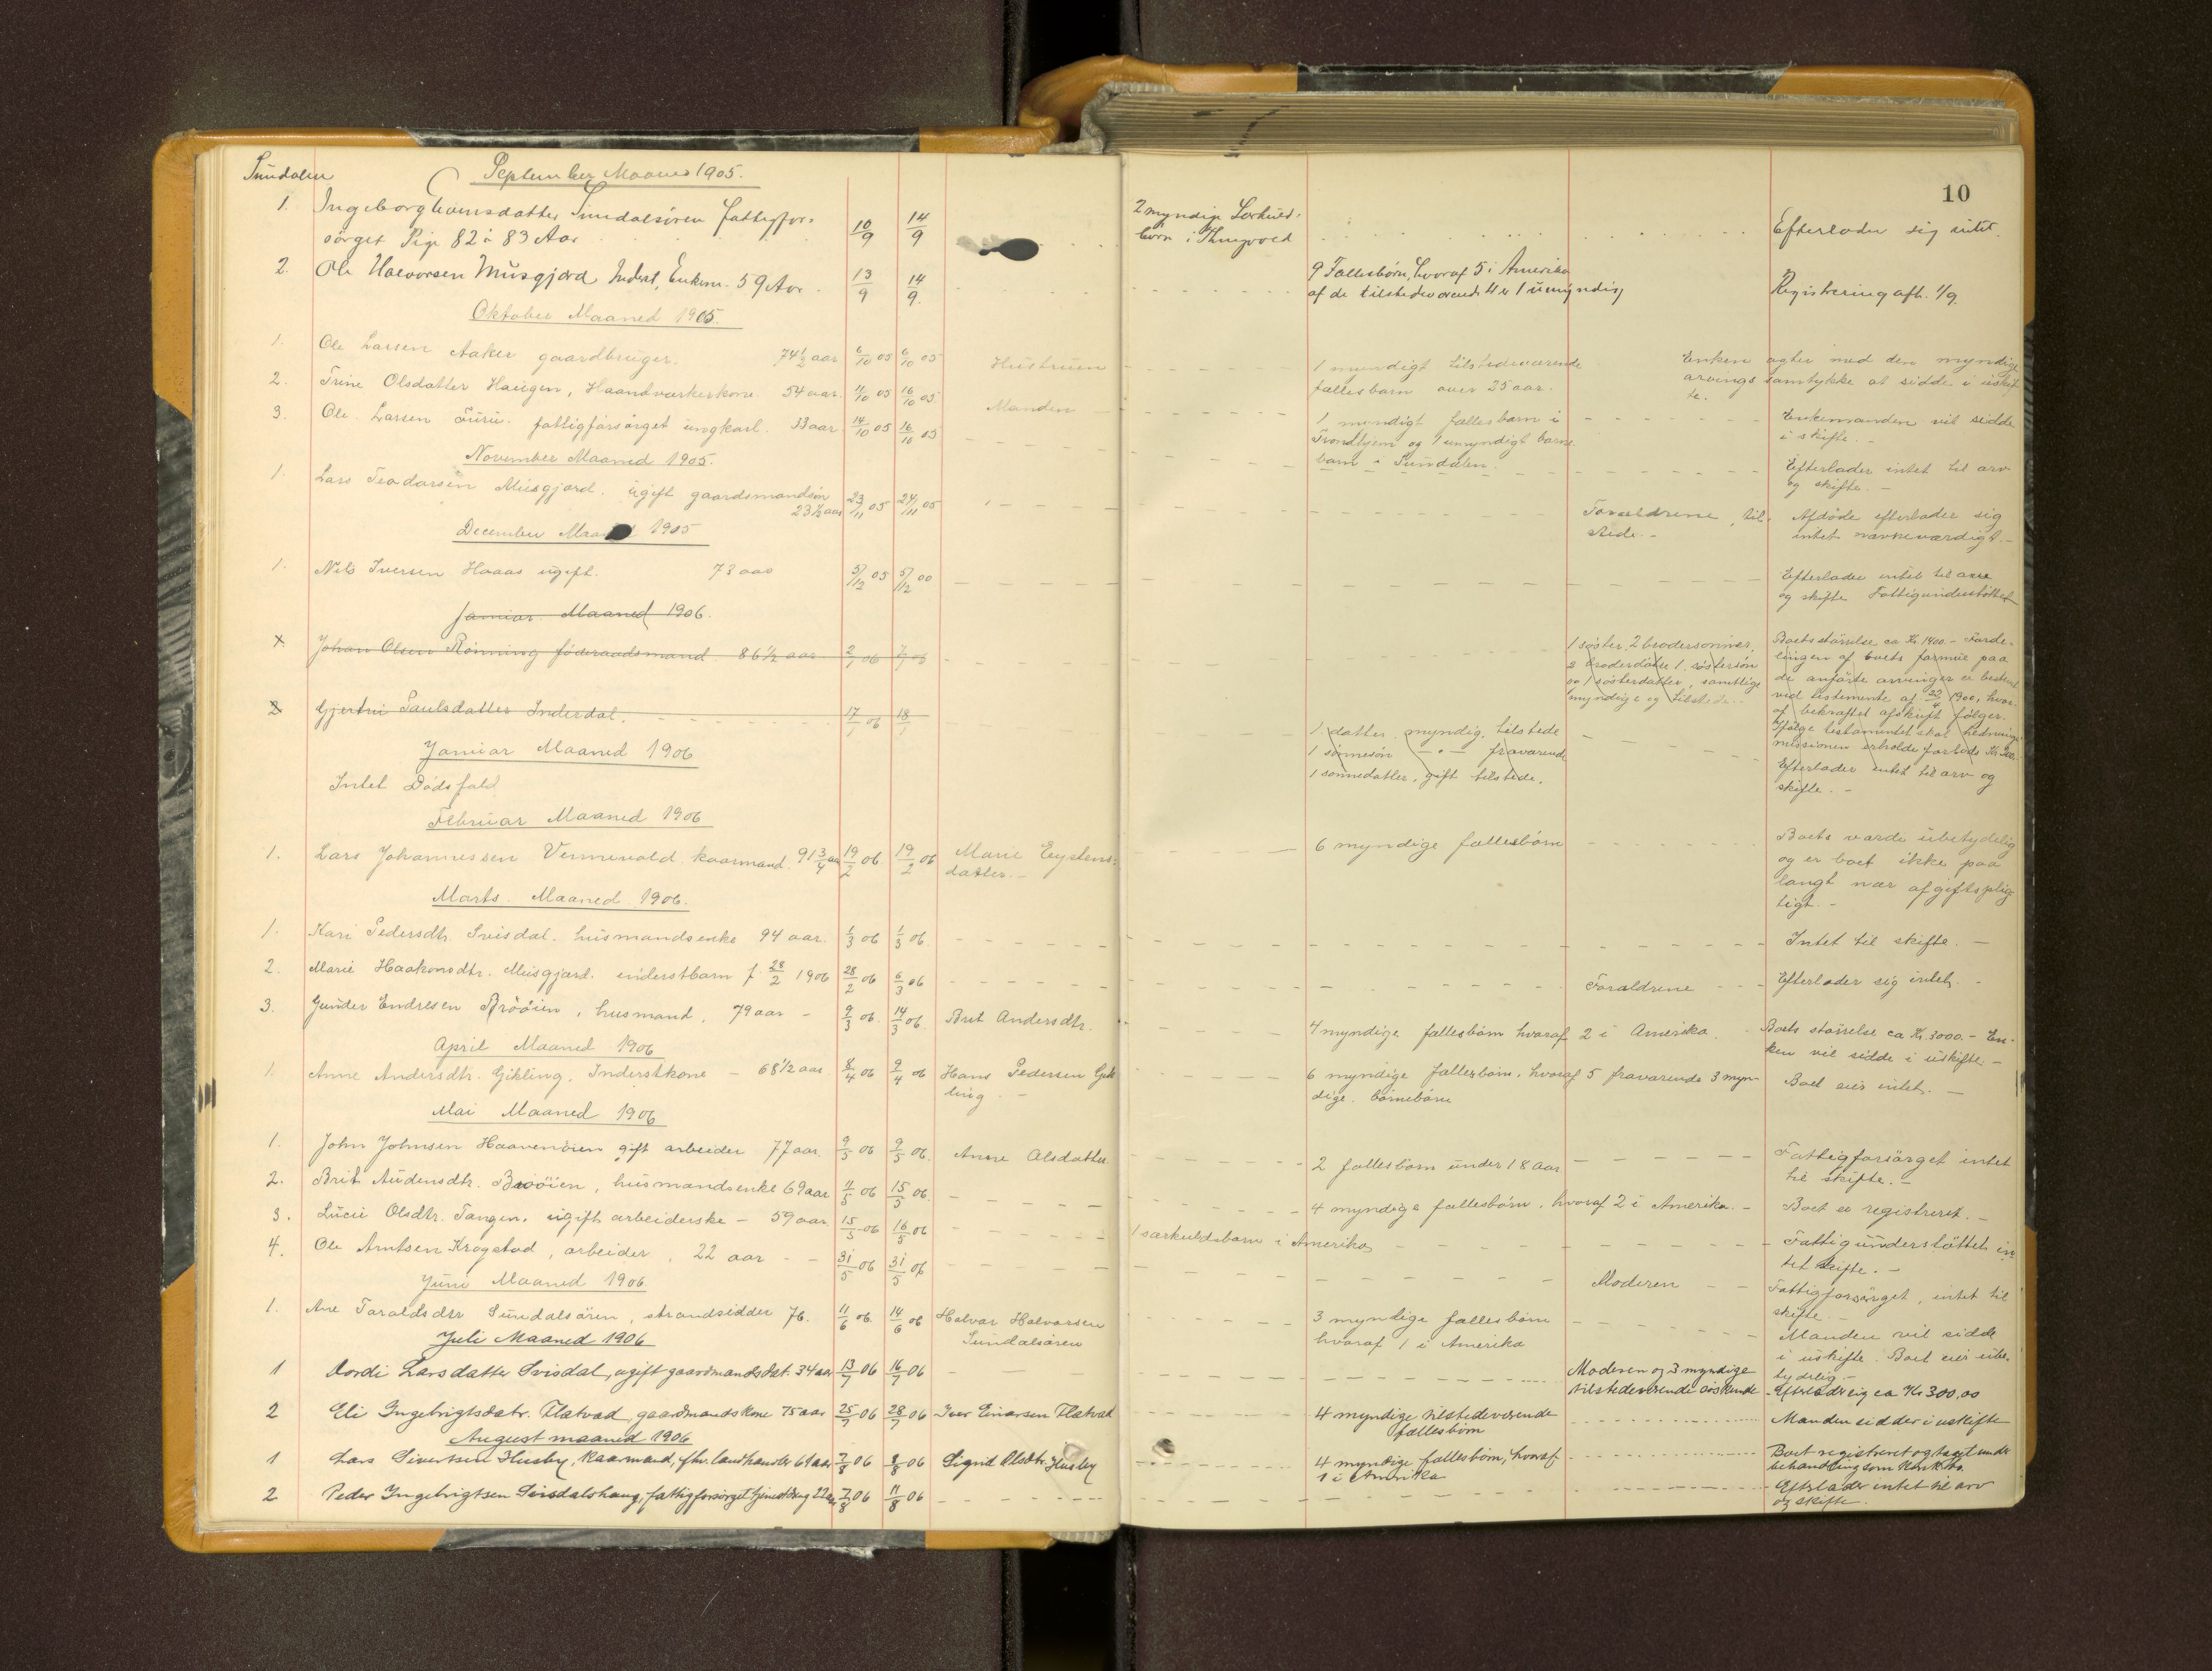 10
Sundalen
September Maaned 1905.
1. Ingeborg Hansdatter Sundalsören fattigfor-
sörget Pige 82 à 83 Aar 10/9 14/9 2 myndige Særkuld-
börn i Thingvold Efterlader sig intet.
2. Ole Halvorsen Musgjord Inderst, Enkem. 59 Aar. 13/9 14/9 9 Fællesbörn, hvoraf 5 i Amerika
af de tilstedeværende 4 er 1 umyndig Registrering afh. 1/9.
Oktober Maaned 1905.
1. Ole Larsen Aaker gaardbruger. 74 1/2 aar 6/10 05 6/10 05 Hustruen 1 myndigt tilstedeværende
fællesbarn over 25 aar. Enken agter med den myndige
arvings samtykke at sidde i uskif
te.
2. Trine Olsdatter Haugen, Haandværkerkone. 54 aar. 11/10 05 16/10 05 Manden 1 myndigt fællesbarn i
Trondhjem og 1 umyndigt barne
barn i Sundalen. Enkemanden vil sidde
i skifte. -
3. Ole Larsen Furu. fattigforsörget ungkarl. 13 aar 14/10 05 16/10 05 Efterlader intet til arv
og skifte. -
November Maaned 1905.
1. Lars Teodorsen Musgjerd. ugift gaardmandsön
23 1/2 aar 23/11 05 24/11 05 Forældrene, til-
stede. - Afdöde efterlader sig
intet nævneværdigt. -
December Maaned 1905
1. Nils Iversen Hoaas ugift. 73 aar 5/12 05 5/12 00 Efterlader intet til arv
og skifte Fattigunderstöttet
Januar Maaned 1906.
x Johan Olsen Rönning föderaadsmand 86 1/2 aar 2/1 06 7/1 06 1 söster, 2 brodersönner,
2 broderdötre 1 söstersön
og 1 sösterdatter, samtlige
myndige og tilstede. Boets störrelse ca Kr. 1400. - Forde-
lingen af boets formue paa
de anförte arvinger er bestemt
ved testemente af 22/4 1900, hvor-
af bekræftet afskrift fölger.
Ifölge testamentet skal hednings
missionen erholde forlods Kr. 200.
2 Gjertru Paulsdatter Inderdal. 17/1 06 18/1 1 datter myndig. tilstede
1 sönnesön -"- fraværende
1 sönnedatter, gift tilstede. Efterlader intet til arv og
skifte. -
Januar Maaned 1906
Intet Dödsfald
Februar Maaned 1906
1. Lars Johannessen Vennevold kaarmand. 91 3/4 aar 19/2 06 19/2 06 Marie Eystens-
datter. - 6 myndige fællesbörn Boets værdi ubetydelig
og er boet ikke paa
langt nær afgiftsplig-
tigt. -
Marts Maaned 1906.
1. Kari Pedersdtr. Svisdal. husmandsenke 94 aar. 1/3 06 1/3 06. Intet til skifte. -
2. Marie Haakonsdtr. Musgjerd. inderstbarn f. 28/2 1906 28/2 06 6/3 06 Forældrene Efterlader sig intet. -
3. Gunder Endresen Brööien, husmand, 79 aar - 9/3 06. 14/3 06. Brit Andersdtr. 4 myndige fællesbörn hvoraf 2 i Amerika. Boets störrelse ca Kr. 3000. - En-
ken vil sidde i uskifte. -
April Maaned 1906
1. Anne Andersdtr. Gikling, Inderstkone - 68 1/2 aar. 8/4 06 9/4 06 Hans Pedersen Gik
ling. - 6 myndige fællesbörn, hvoraf 5 fraværende 3 myn-
dige börnebörn Boet eier intet. -
Mai Maaned 1906
1. John Johnsen Haavenöien gift arbeider 77 aar. 9/5 06 9/5 06. Anne Olsdatter 2 fællesbörn under 18 aar Fattigforsörget intet
til skifte. -
2. Brit Audensdtr. Brööien, husmandsenke 69 aar 11/5 06 15/5 06. 4 myndige fællesbörn, hvoraf 2 i Amerika. - Boet er registreret. -
3. Lucie Olsdtr. Tangen. ugift arbeiderske - 59 aar. 15/5 06 16/5 06 1 særkuldsbarn i Amerika Fattigunderstöttet in
tet skifte. -
4. Ole Arntsen Krogstad, arbeider, 22 aar 31/5 06 31/5 06 Moderen Fattigforsörget, intet til
skifte. -
Juni Maaned 1906.
1. Ane Taraldsdtr Sundalsören, strandsidder 76. 11/6 06. 14/6 06 Halvor Halvorsen
Sundalsören 3 myndige fællesbörn
hvoraf 1 i Amerika Manden vil sidde
i uskifte. Boet eier ube-
tydelig. -
Juli Maaned 1906
1 Mordi Larsdatter Svisdal, ugift gaardmandsdat. 34 aar 13/7 06 16/7 06 Moderen og 3 myndige
tilstedeværende söskende - Efterlader sig ca Kr 300,00
2 Eli Ingebrigtsdatr. Flatvad, gaardmandskone 75 aar 25/7 06 28/7 06 Iver Einarsen Flatvad 4 myndige tilstedeværende
fællesbörn Manden sidder i uskifte
August maaned 1906
1 Lars Sivertsen Husby, kaarmand, fhv. landhandler 61 aar 7/8 06 8/8 06 Sigrid Olsdtr. Husby 4 myndige fællesbörn, hvoraf
1 i Amerika Boet registreret og taget under
behandling som Konkbo.
2 Peder Ingebrigtsen Svisdalshaug, fattigforsörget tjenestdreng 22 aar 7/8 06 11/8 06 Efterlader intet til arv
og skifte.